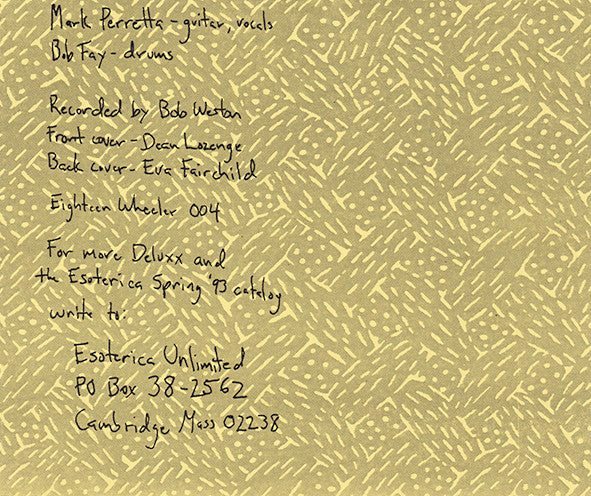 Mark Perretta - guitar, vocals
Bob Fay - drums
Recorded by Bob Weston
Front cover - Dean Lozenge
Back cover - Eva Fairchild
Eighteen Wheeler 004
For more Deluxx and
the Esoterica Spring '93 catalog
write to:
Esoterica Unlimited
PO Box 38-2562
Cambridge Mass 02238